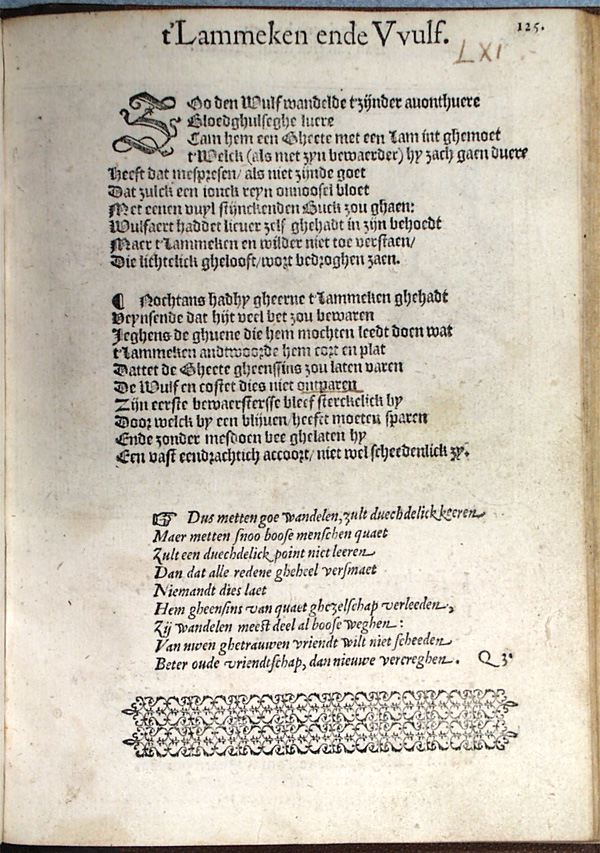 t'Lammeken ende Vvulf.
125.
LXI
Soo den Wulf wandelde t'zijnder auonthuere
Bloedghulseghe luere
Cam hem een Gheete met een Lam int ghemoet
t'Welck (als met zyn bewaerder) hy zach gaen duere
Heeft dat mespresen/ als niet zijnde goet
Dat zulck een ionck reyn onnoosel bloet
Met eenen vuyl stijnckenden Buck zou ghaen:
Wulfaert haddet lieuer zelf ghehadt in zijn behoedt
Maer t'Lammeken en wilder niet toe verstaen/
Die lichtelick ghelooft/ wort bedroghen zaen.
¶ Nochtans hadhy gheerne t'Lammeken ghehadt
Veynsende dat hijt veel bet zou bewaren
Jeghens de ghuene die hem mochten leedt doen wat
t'Lammeken andtwoorde hem cort en plat
Dattet de Gheete gheenssins zou laten varen
De Wulf en costet dies niet ontparen
Zijn eerste bewaerstersse bleef sterckelick by
Door welck by een blijuen/ heeft moeten sparen
Ende zonder mesdoen bee ghelaten hy
Een vast eendrachtich accoort/ niet wel scheedenlick zy.
☞ Dus metten goe wandelen, zult duechdelick keeren
Maer metten snoo boose menschen quaet
Zult een duechdelick point niet leeren
Dan dat alle redene gheheel versmaet
Niemandt dies laet
Hem gheensins van quaet ghezelschap verleeden,
Zij wandelen meest deel al boose weghen:
Van uwen ghetrauwen vriendt wilt niet scheeden
Beter oude vriendtschap, dan nieuwe vercreghen.
Q 3.